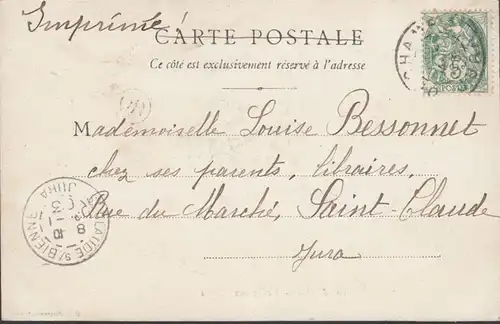 Imprimé
CARTE POSTALE
Ce côté est exclusivement réservé à l'adresse
Mademoiselle Louise Bessonnet
chez ses parents, libraires,
Rue du Marché, Saint-Claude
Jura
JURA